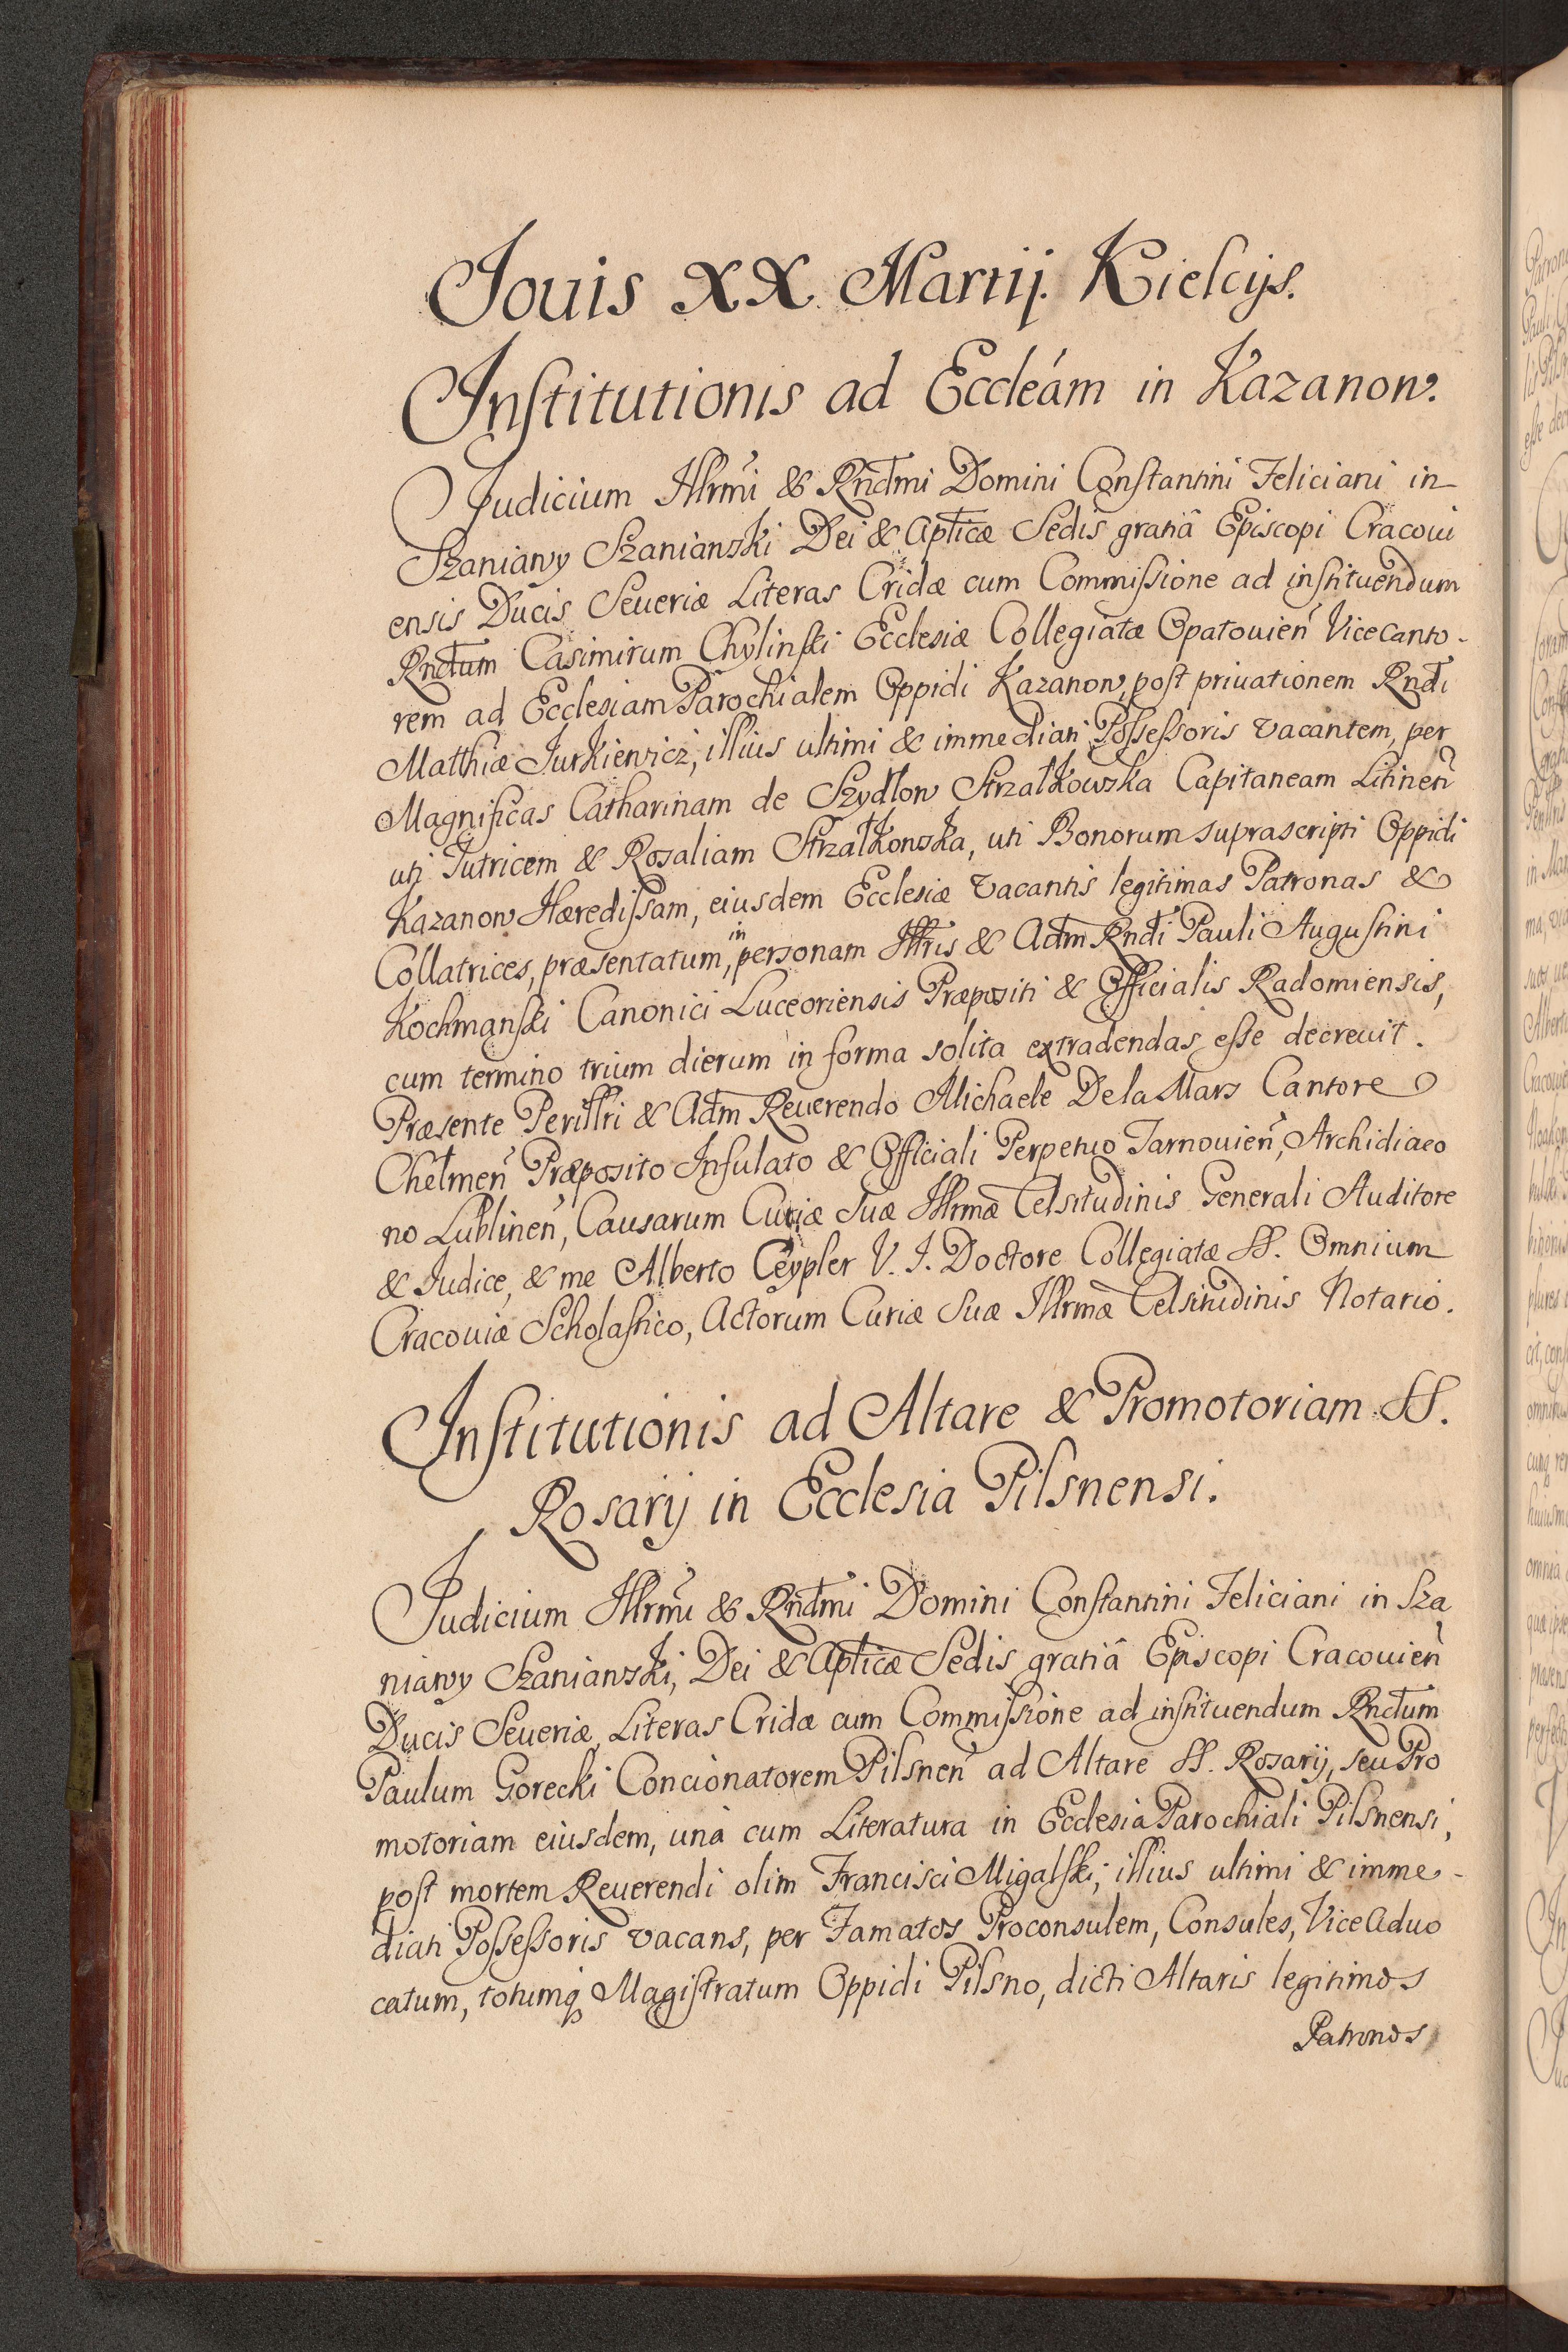 Jouis XX. Martij. Kielcijs.
Institutionis ad Eccleám in Kazanow.
Judicium Illrm̃i & Rnd̃mi Domini Constantini Feliciani in
Szaniawy Szaniawski Dei & Aptĩcæ Sedis gratiâ Episcopi Cracoui
ensis Ducis Seueriæ Literas Cridæ cum Commissione ad instituendum
Rnd̃um Casimirum Chylinski Ecclesiæ Collegiatæ Opatouień Vicecanto-
rem ad Ecclesiam Parochialem Oppidi Kazanow, post priuationem Rnd̃i
Matthiæ Jurkiewicz, illius ultimi & immediati Possessoris vacantem, per
Magnificas Catharinam de Szydłow Strzałkowska Capitaneam Litineñ
uti Tutricem & Rosaliam Strzałkowska, uti Bonorum suprascripti Oppidi
Kazanow Hæredissam, eiusdem Ecclesiæ vacantis legitimas Patronas &
Collatrices, præsentatum, in personam Illr̃is & Ad̃m Rnd̃i Pauli Augustini
Kochmanski Canonici Luceoriensis Præpositi & Officialis Radomiensis,
cum termino trium dierum in forma solita extradendas esse decreuit.
Præsente Perillr̃i & Ad̃m Reuerendo Michaele De la Mars Cantore
Chełmeñ Præposito Infulato & Officiali Perpetuo Tarnouieñ, Archidiaco
no Lublineñ, Causarum Curiæ Suæ Illrm̃æ Celsitudinis Generali Auditore
& Judice, & me Alberto Ceypler V. J. Doctore Collegiatæ SS. Omnium
Cracouiæ Scholastico, Actorum Curiæ Suæ Illrmæ̃ Celsitudinis Notario.
Institutionis ad Altare & Promotoriam SS.
Rosarij in Ecclesia Pilsnensi.
Judicium Illrm̃i & Rnd̃mi Domini Constantini Feliciani in Sza
niawy Szaniawski, Dei & Aptĩcæ Sedis gratiâ Episcopi Cracouieñ
Ducis Seueriæ, Literas Cridæ cum Commissione ad instituendum Rnd̃um
Paulum Gorecki Concionatorem Pilsneñ ad Altare SS. Rosarij, seu Pro
motoriam eiusdem, unà cum Literatura in Ecclesia Parochiali Pilsnensi,
post mortem Reuerendi olim Francisci Migalski, illius ultimi & imme-
diati Possessoris vacans, per Famatos Proconsulem, Consules, ViceAduo
catum, totumq Magistratum Oppidi Pilsno, dicti Altaris legitimos
Patronos